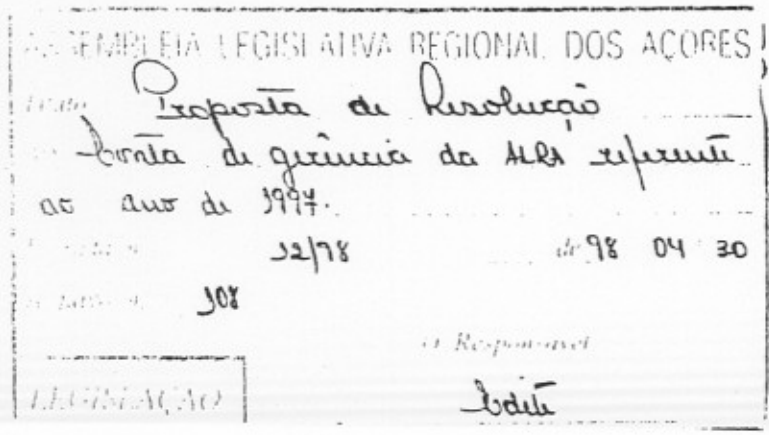 ASSEMBLEIA LEGISLATIVA REGIONAL DOS AÇORES
Proposta de Resolução
Conta de gerência da ALRA referente
ao ano de 1997.
12/98 de 98 04 30
108
O Responsável
LEGISLAÇÃO Edite